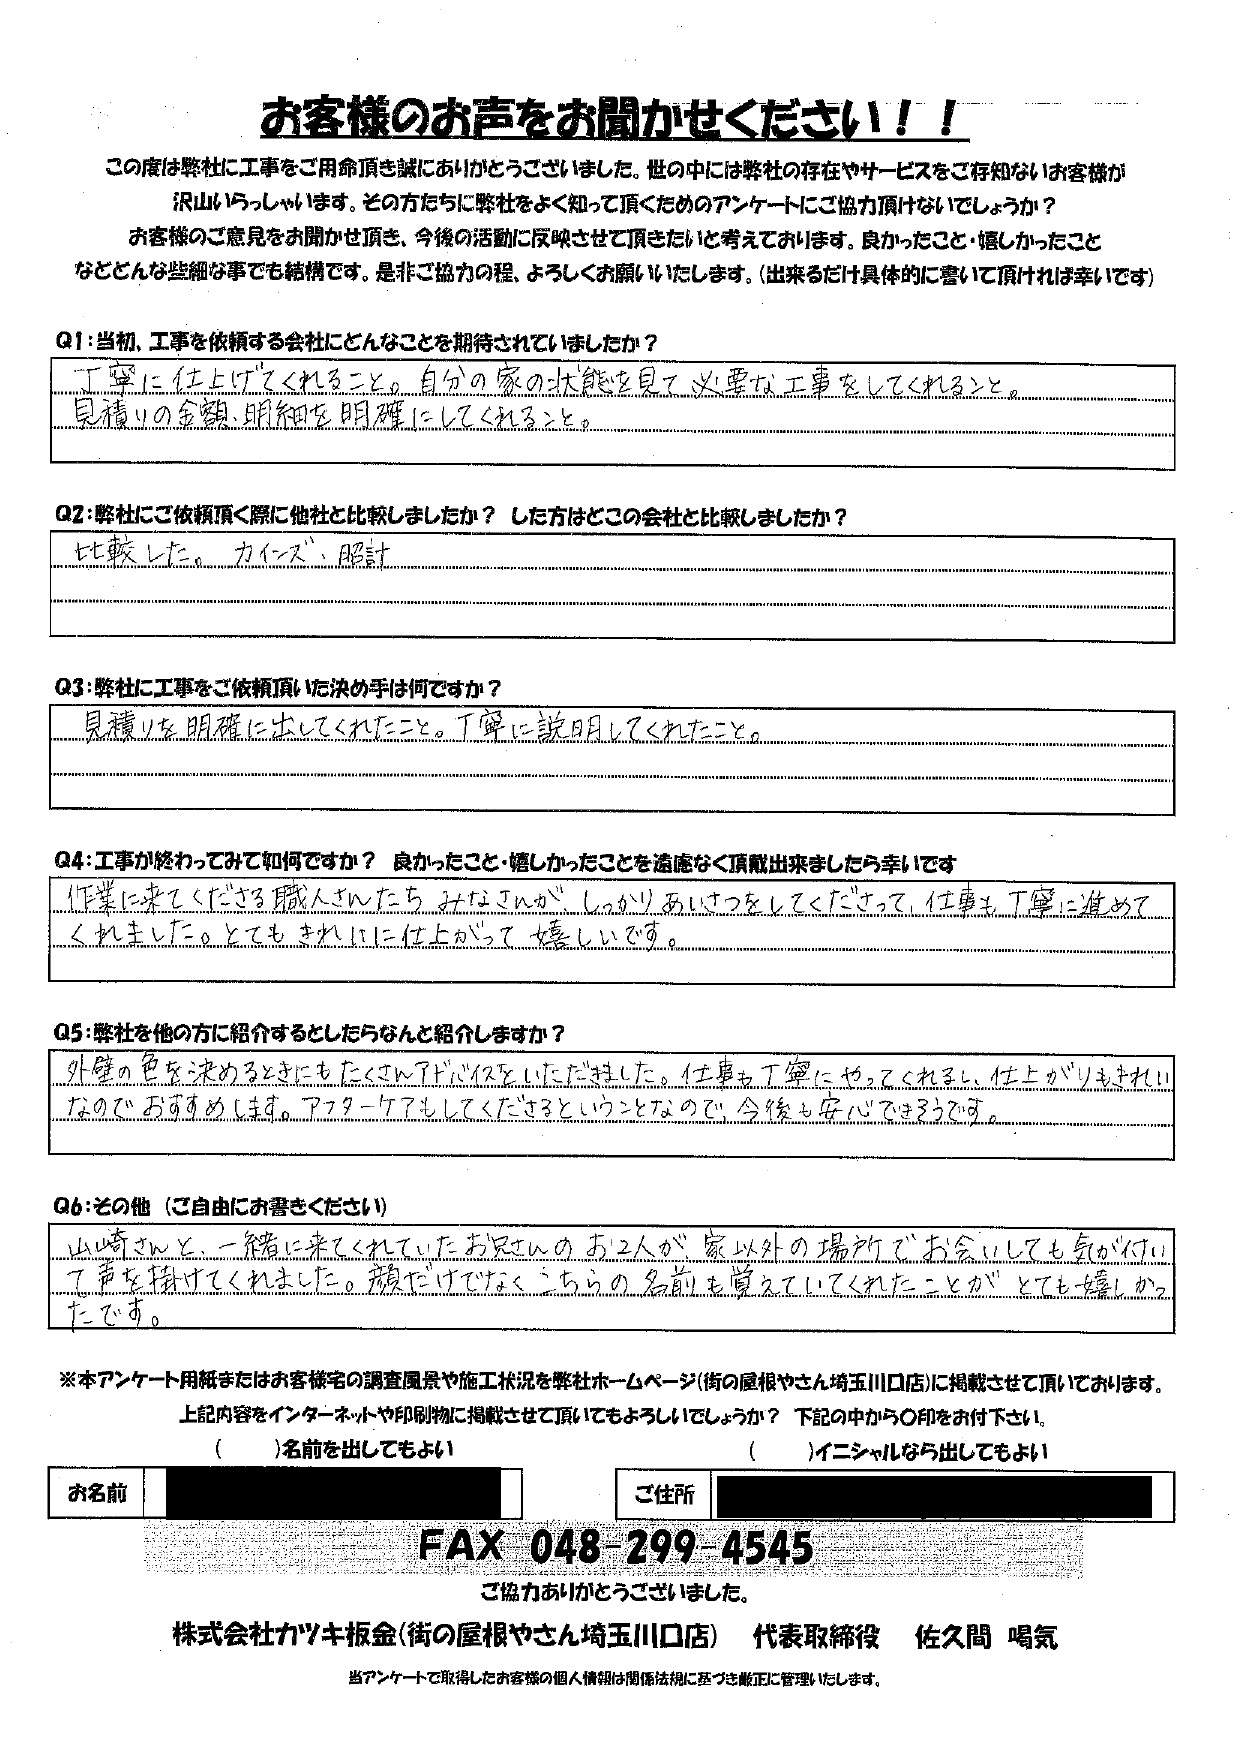 お客様のお声をお聞かせください！！
この度は弊社に工事をご用命頂き誠にありがとうございました。世の中には弊社の存在やサービスをご存知ないお客様が
沢山いらっしゃいます。その方たちに弊社をよく知って頂くためのアンケートにご協力頂けないでしょうか？
お客様のご意見をお聞かせ頂き、今後の活動に反映させて頂きたいと考えております。良かったこと・嬉しかったこと
などどんな些細な事でも結構です。是非ご協力の程、よろしくお願いいたします。(出来るだけ具体的に書いて頂ければ幸いです)
Q1：当初、工事を依頼する会社にどんなことを期待されていましたか？
丁寧に仕上げてくれること。自分の家の状態を見て必要な工事をしてくれること。
見積りの金額、明細を明確にしてくれること。
Q2：弊社にご依頼頂く際に他社と比較しましたか？ した方はどこの会社と比較しましたか？
比較した。カインズ、昭計
Q3：弊社に工事をご依頼頂いた決め手は何ですか？
見積りを明確に出してくれたこと。丁寧に説明してくれたこと。
Q4：工事が終わってみて如何ですか？ 良かったこと・嬉しかったことを遠慮なく頂戴出来ましたら幸いです
作業に来てくださる職人さんたちみなさんが、しっかりあいさつをしてくださって、仕事も丁寧に進めて
くれました。とてもきれいに仕上がって嬉しいです。
Q5：弊社を他の方に紹介するとしたらなんと紹介しますか？
外壁の色を決めるときにもたくさんアドバイスをいただきました。仕事も丁寧にやってくれるし、仕上がりもきれい
なのでおすすめします。アフターケアもしてくださるということなので、今後も安心できそうです。
Q6：その他 (ご自由にお書きください)
山崎さんと、一緒に来てくれていたお兄さんのお2人が、家以外の場所でお会いしても気が付い
て声を掛けてくれました。顔だけでなくこちらの名前も覚えていてくれたことがとても嬉しかっ
たです。
※本アンケート用紙またはお客様宅の調査風景や施工状況を弊社ホームページ(街の屋根やさん埼玉川口店)に掲載させて頂いております。
上記内容をインターネットや印刷物に掲載させて頂いてもよろしいでしょうか？ 下記の中から〇印をお付下さい。
(　　)名前を出してもよい　(　　)イニシャルなら出してもよい
お名前　ご住所
FAX 048-299-4545
ご協力ありがとうございました。
株式会社カツキ板金(街の屋根やさん埼玉川口店)　代表取締役　佐久間 喝気
当アンケートで取得したお客様の個人情報は関係法規に基づき厳正に管理いたします。